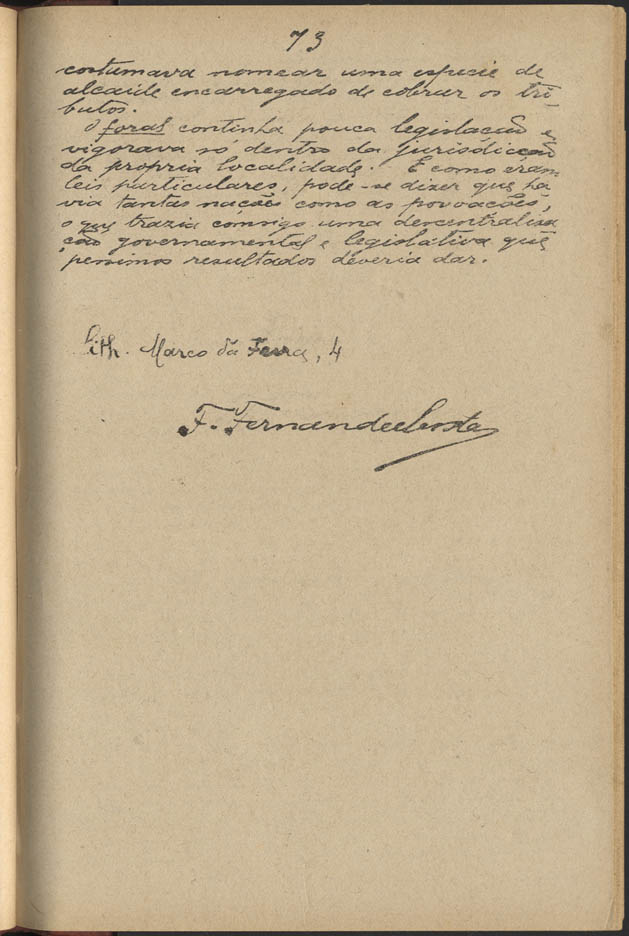 73
costumava nomear uma especie de
alcaide encarregado de cobrar os tri-
butos.
O foral continha pouca legislação e
vigorava só dentro da jurisdicção
da propria localidade. E como eram
leis particulares, pode-se dizer que ha
via tantas nações como as povoações,
o que trazia comsigo uma descentralisa
ção governamental e legislativa que
pessimos resultados deveria dar.
Lith. Marco da Feira, 4
F. Fernandes Costa